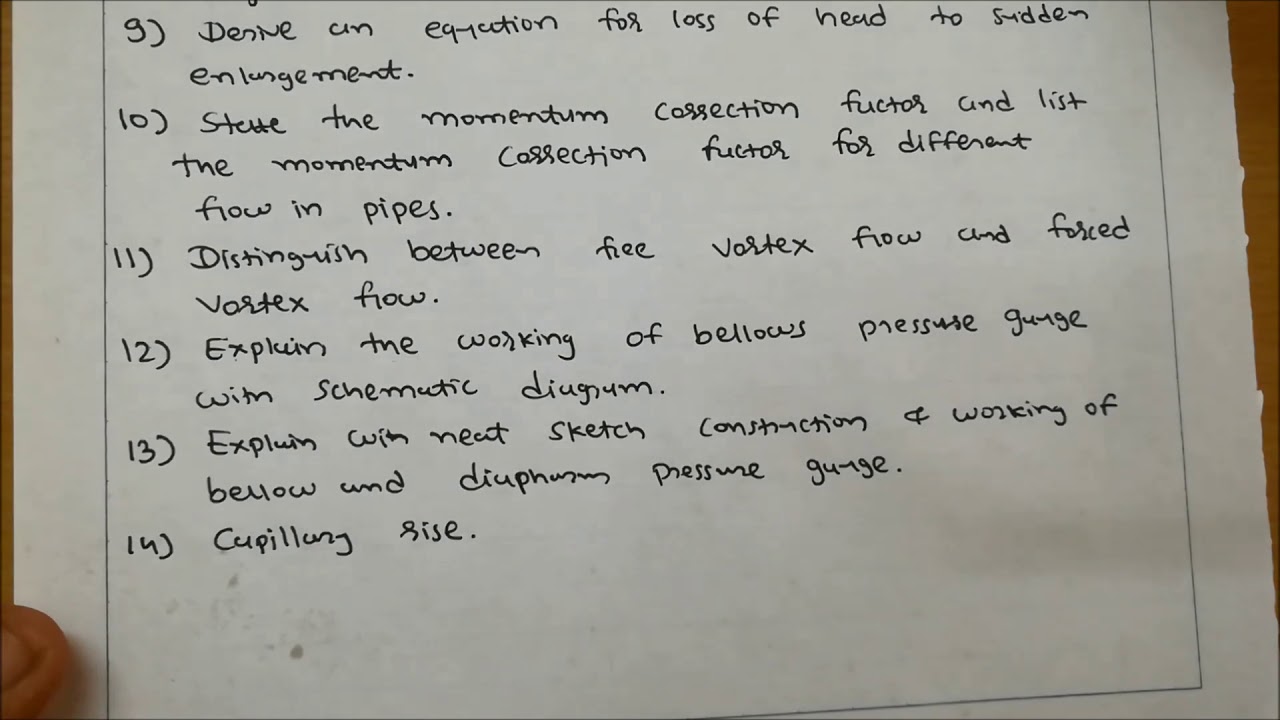 9) Derive an equation for loss of head to sudden
enlargement.
10) State the momentum correction factor and list
the momentum correction factor for different
flow in pipes.
11) Distinguish between free vortex flow and forced
vortex flow.
12) Explain the working of bellows pressure gauge
with schematic diagram.
13) Explain with neat sketch construction & working of
bellow and diaphram pressure gauge.
14) Capillary rise.